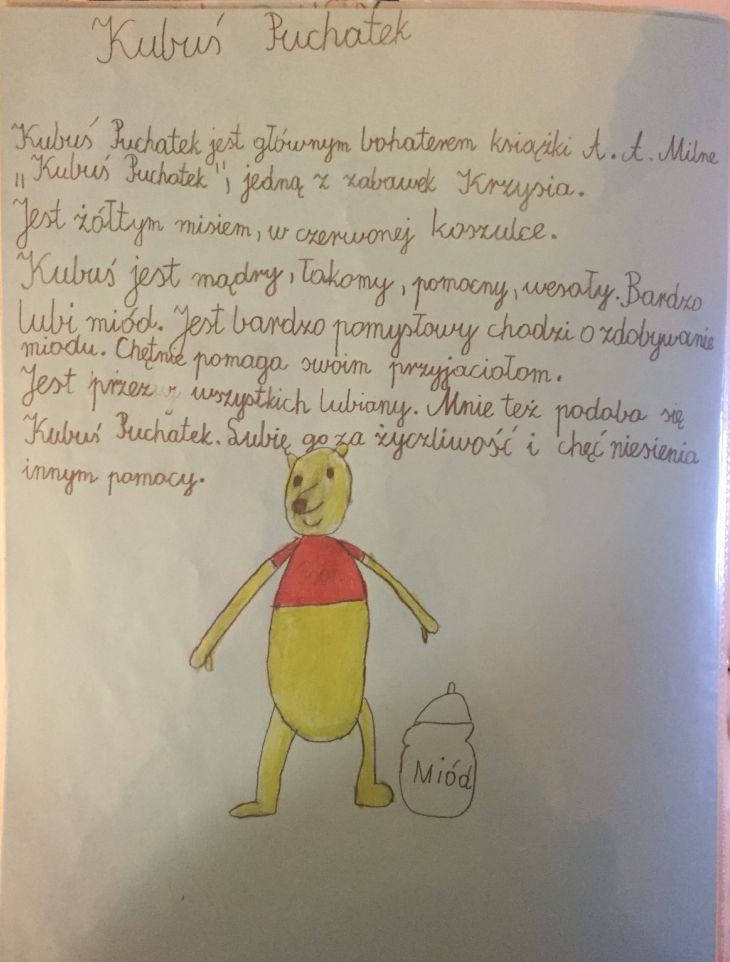 Kubuś Puchatek
Kubuś Puchatek jest głównym bohaterem książki A. A. Milne
„Kubuś Puchatek", jedną z zabawek Krzysia.
Jest żółtym misiem, w czerwonej koszulce.
Kubuś jest mądry, łakomy, pomocny, wesały. Bardzo
lubi miód. Jest bardzo pomysłowy chodzi o zdobywanie
miodu. Chętnie pomaga swoim przyjaciołom.
Jest przez wszystkich lubiany. Mnie też podoba się
Kubuś Puchatek. Lubię go za życzliwość i chęć niesienia
innym pomocy.
Miód